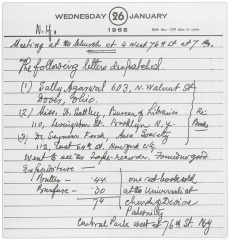 WEDNESDAY 26 JANUARY
1966
N.Y.
Meeting at the Church at 4 West 76th St at 7
The following letters despatched.
(1) Sally Agarwal 603, N. Walnut St
Dover, Ohio.
(2) Miss. D. Bureau of Libraries
110, Livingston St. Brooklyn N.Y. Re: Books
3) Dr. Seymour Asia Society
112, East 64th St. New York City
Went to see the tape-recorder. Found no good
Expenditure -
- 44 one not book sold
- 30 at the Universalist
74 church, Divine
Paternity
Central Park West at 76th St. NY